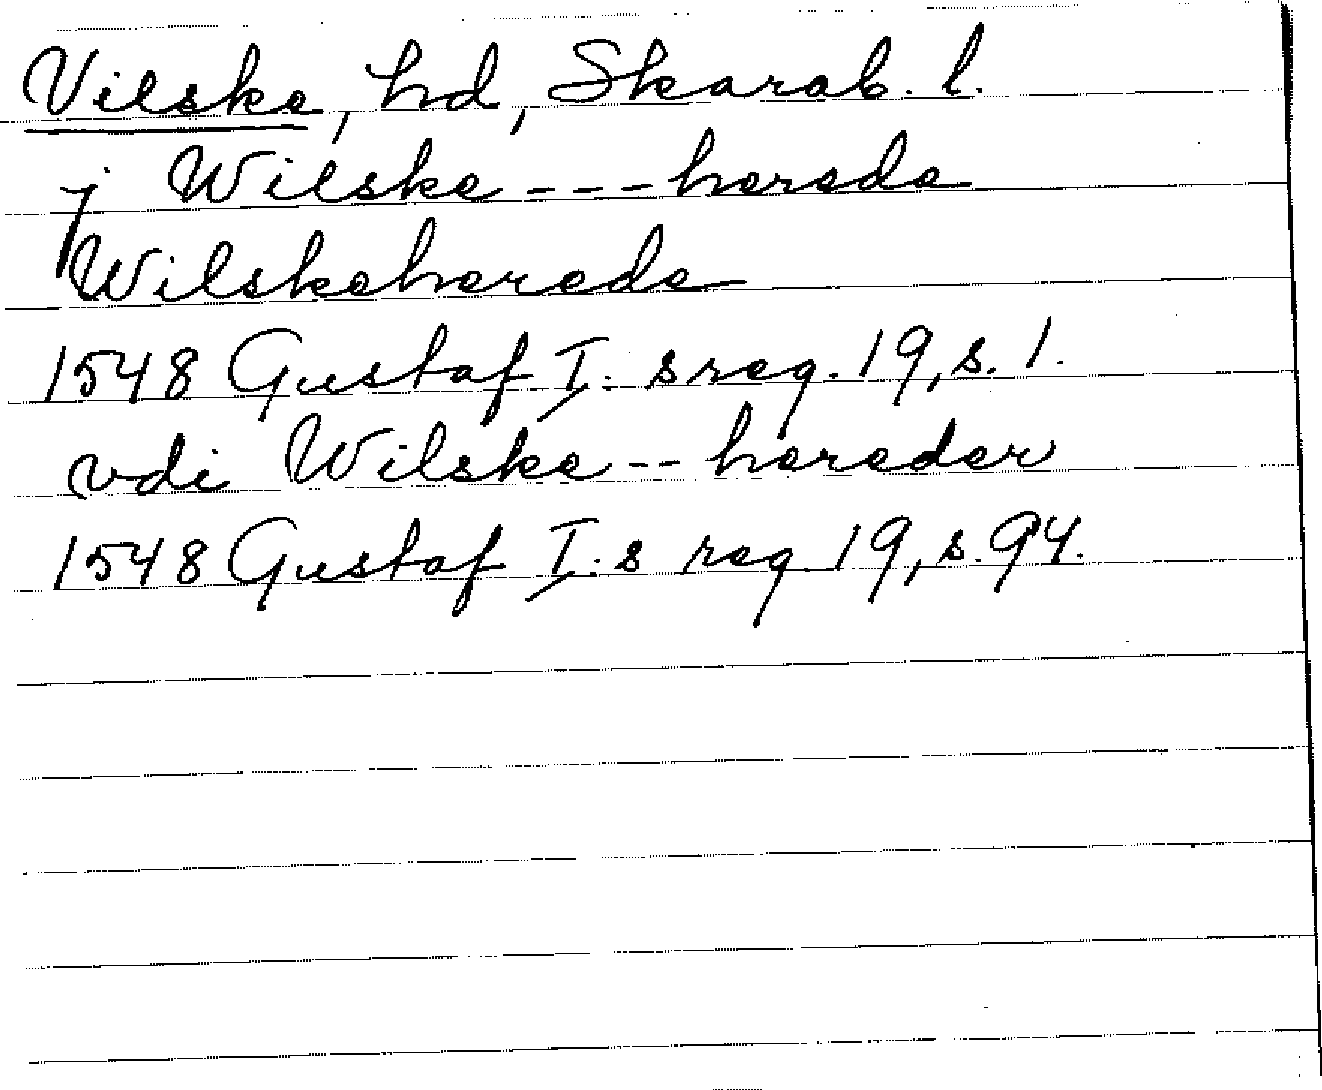 Vilske, hd, Skarab. l.
j Wilske --- herede
Wilskeherede
1548 Gustaf I: s reg. 19, s. 1.
vdi Wilske -- hereder
1548 Gustaf I. s reg 19, s. 94.